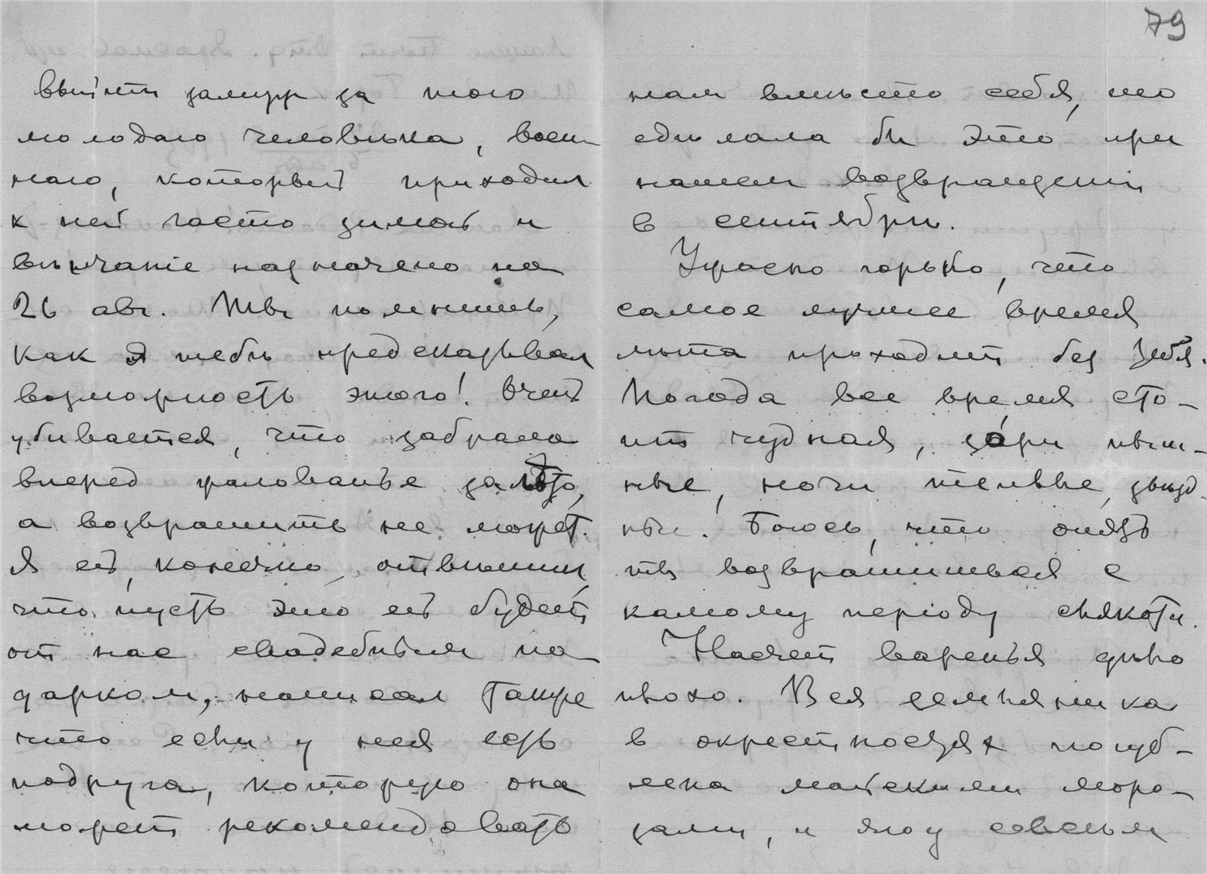 выйти замуж за того
молодого человѣка, воен-
наго, который приходил
к ней часто зимой и
вѣнчаніе назначено на
26 авг. Ты помнишь,
как я тебѣ предсказывал
возможность этого! Очень
убивается, что забрала
вперед жалованье за лѣто,
а возвратить не может.
Я ей, конечно, отвѣтил,
что пусть это ей будет
от нас свадебным по-
дарком, написал также
что если у нея есть
подруга, которую она
может рекомендовать
79
нам вмѣсто себя, то
сдѣлала бы это, при
нашем возвращеніи
в сентябрѣ.
Ужасно горько, что
самое лучшее время
лѣта проходит без тебя.
Погода все время сто-
ит чудная, зори пыш-
ные, ночи теплые, звѣзд-
ныя. Боюсь, что опять
ты возвратишься с
самому періоду слякоти.
Насчет варенья дѣло
плохо. Вся земляника
в окрестностях погуб-
лена майскими моро-
зами, и ягод совсѣм